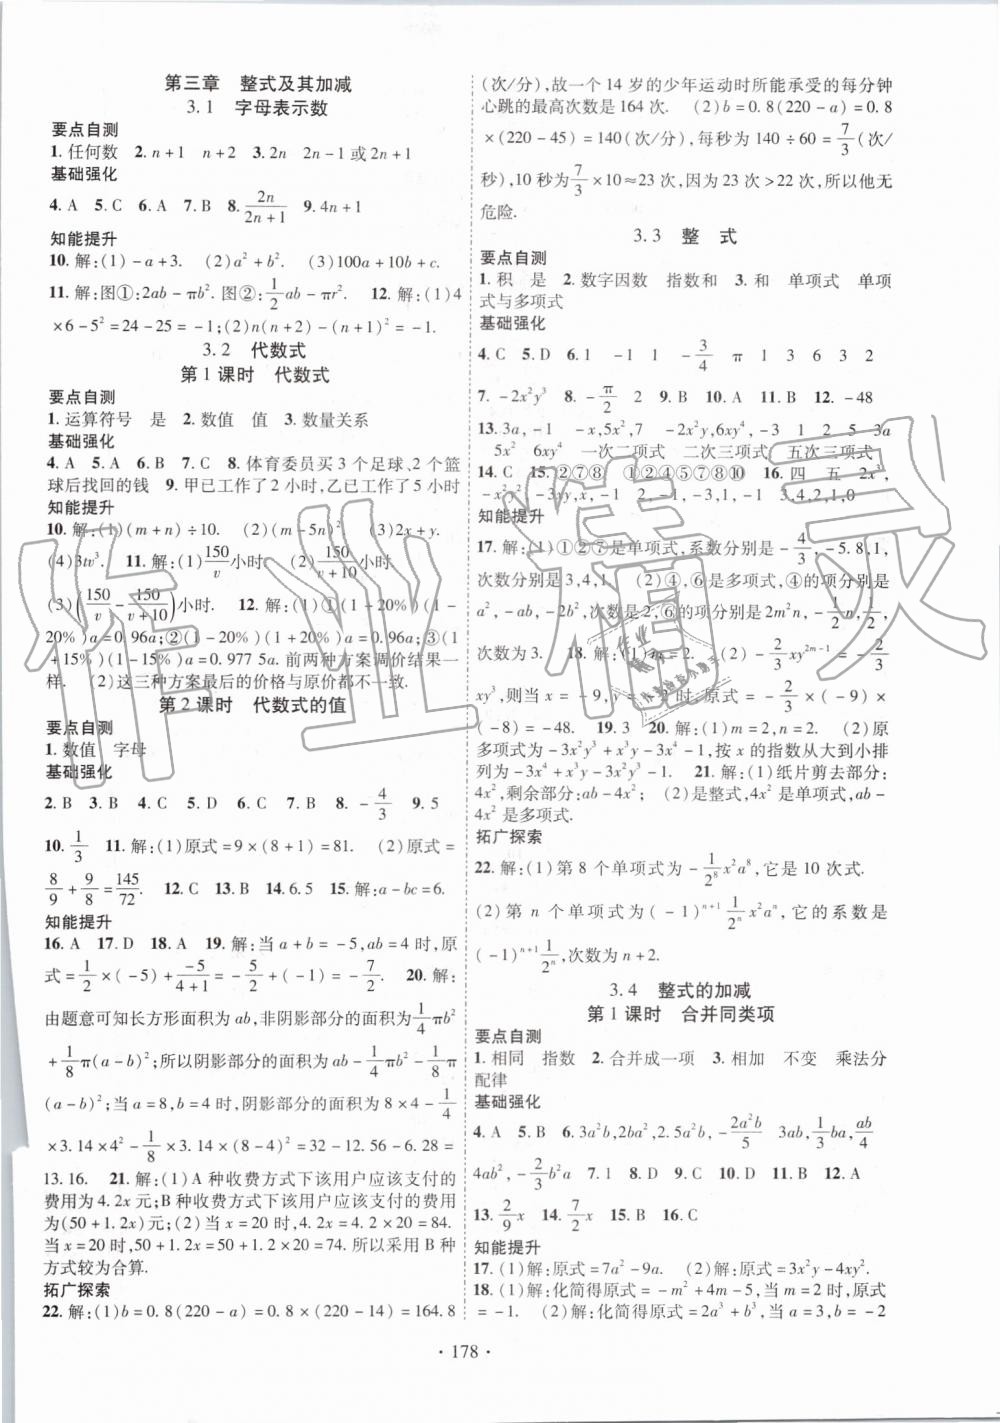 第三章　整式及其加减
3.1　字母表示数
要点自测
1. 任何数　2. n+1　n+2　3. 2n　2n-1 或 2n+1
基础强化
4. A　5. C　6. A　7. B　8. 2n/(2n+1)　9. 4n+1
知能提升
10. 解:(1)-a+3.　(2)a²+b².　(3)100a+10b+c.
11. 解:图①:2ab-πb². 图②:1/2ab-πr².　12. 解:(1)4
×6-5²=24-25=-1;(2)n(n+2)-(n+1)²=-1.
3.2　代数式
第 1 课时　代数式
要点自测
1. 运算符号　是　2. 数值　值　3. 数量关系
基础强化
4. A　5. A　6. B　7. C　8. 体育委员买 3 个足球、2 个篮
球后找回的钱　9. 甲已工作了 2 小时,乙已工作了 5 小时
知能提升
10. 解:(1)(m+n)÷10.　(2)(m-5n)².　(3)2x+y.
(4)3tv³.　11. 解:(1)150/v小时　(2)150/(v+10)小时.
(3)(150/v-150/(v+10))小时.　12. 解:(1)①(1+20%)(1-
20%)a=0.96a;②(1-20%)(1+20%)a=0.96a;③(1
+15%)(1-15%)a=0.977 5a. 前两种方案调价结果一
样.　(2)这三种方案最后的价格与原价都不一致.
第 2 课时　代数式的值
要点自测
1. 数值　字母
基础强化
2. B　3. B　4. C　5. D　6. B　7. B　8. -4/3　9. 5
10. 1/3　11. 解:(1)原式=9×(8+1)=81.　(2)原式=
8/9+9/8=145/72.　12. C　13. B　14. 6.5　15. 解:a-bc=6.
知能提升
16. A　17. D　18. A　19. 解:当 a+b=-5,ab=4 时,原
式=1/2×(-5)+-5/(4+1)=-5/2+(-1)=-7/2.　20. 解:
由题意可知长方形面积为 ab,非阴影部分的面积为1/4πb²
+1/8π(a-b)²;所以阴影部分的面积为 ab-1/4πb²-1/8π
(a-b)²;当 a=8,b=4 时,阴影部分的面积为 8×4-1/4
×3.14×4²-1/8×3.14×(8-4)²=32-12.56-6.28=
13.16.　21. 解:(1)A 种收费方式下该用户应该支付的
费用为 4.2x 元;B 种收费方式下该用户应该支付的费用
为(50+1.2x)元;(2)当 x=20 时,4.2x=4.2×20=84.
当 x=20 时,50+1.2x=50+1.2×20=74. 所以采用 B 种
方式较为合算.
拓广探索
22. 解:(1)b=0.8(220-a)=0.8×(220-14)=164.8
(次/分),故一个 14 岁的少年运动时所能承受的每分钟
心跳的最高次数是 164 次.　(2)b=0.8(220-a)=0.8
×(220-45)=140(次/分),每秒为 140÷60=7/3(次/
秒),10 秒为7/3×10≈23 次,因为 23 次>22 次,所以他无
危险.
3.3　整　式
要点自测
1. 积　是　2. 数字因数　指数和　3. 和　单项式　单项
式与多项式
基础强化
4. C　5. D　6. 1　-1　1　-3/4　π　1　3　6　3　2
7. -2x²y³　8. -π/2　2　9. B　10. A　11. B　12. -48
13. 3a,-1　-x,5x²,7　-2x²y,6xy⁴,-3　1　2　5　3a
5x²　6xy⁴　一次二项式　二次三项式　五次三项式
14. C　15. ②⑦⑧　①②④⑤⑦⑧⑩　16. 四　五　2x³,
-x²y²,-3xy,x,-1　2,-1,-3,1,-1　3,4,2,1,0
知能提升
17. 解:(1)①②⑦是单项式,系数分别是-4/3,-5.8,1,
次数分别是 3,4,1.　(2)④,⑥是多项式,④的项分别是
a²,-ab,-2b²,次数是 2,⑥的项分别是 2m²n,-1/2n,1/2,
次数为 3.　18. 解:(1)m=2.　(2)-2/3xy²ᵐ⁻¹=-2/3
xy³,则当 x=-9,y=-2 时,原式=-2/3×(-9)×
(-8)=-48.　19. 3　20. 解:(1)m=2,n=2.　(2)原
多项式为-3x²y³+x³y-3x⁴-1,按 x 的指数从大到小排
列为-3x⁴+x³y-3x²y³-1.　21. 解:(1)纸片剪去部分:
4x²,剩余部分:ab-4x²;　(2)是整式,4x² 是单项式,ab-
4x² 是多项式.
拓广探索
22. 解:(1)第 8 个单项式为-1/2⁸x²a⁸,它是 10 次式.
(2)第 n 个单项式为(-1)ⁿ⁺¹1/2ⁿx²aⁿ,它的系数是
(-1)ⁿ⁺¹1/2ⁿ,次数为 n+2.
3.4　整式的加减
第 1 课时　合并同类项
要点自测
1. 相同　指数　2. 合并成一项　3. 相加　不变　乘法分
配律
基础强化
4. A　5. B　6. 3a²b,2ba²,2.5a²b,-2a²b/5　3ab,1/3ba,ab/4
4ab²,-2/3b²a　7. 1　8. D　9. B　10. D　11. B　12. A
13. 2/9x　14. 7/2x　15. B　16. C
知能提升
17. (1)解:原式=7a²-9a.　(2)解:原式=3x²y-4xy².
18. (1)解:化简得原式=-m²+4m-5,当 m=2 时,原式
=-1.　(2)解:化简得原式=2a³+b³,当 a=3,b=-2
· 178 ·
作业精灵